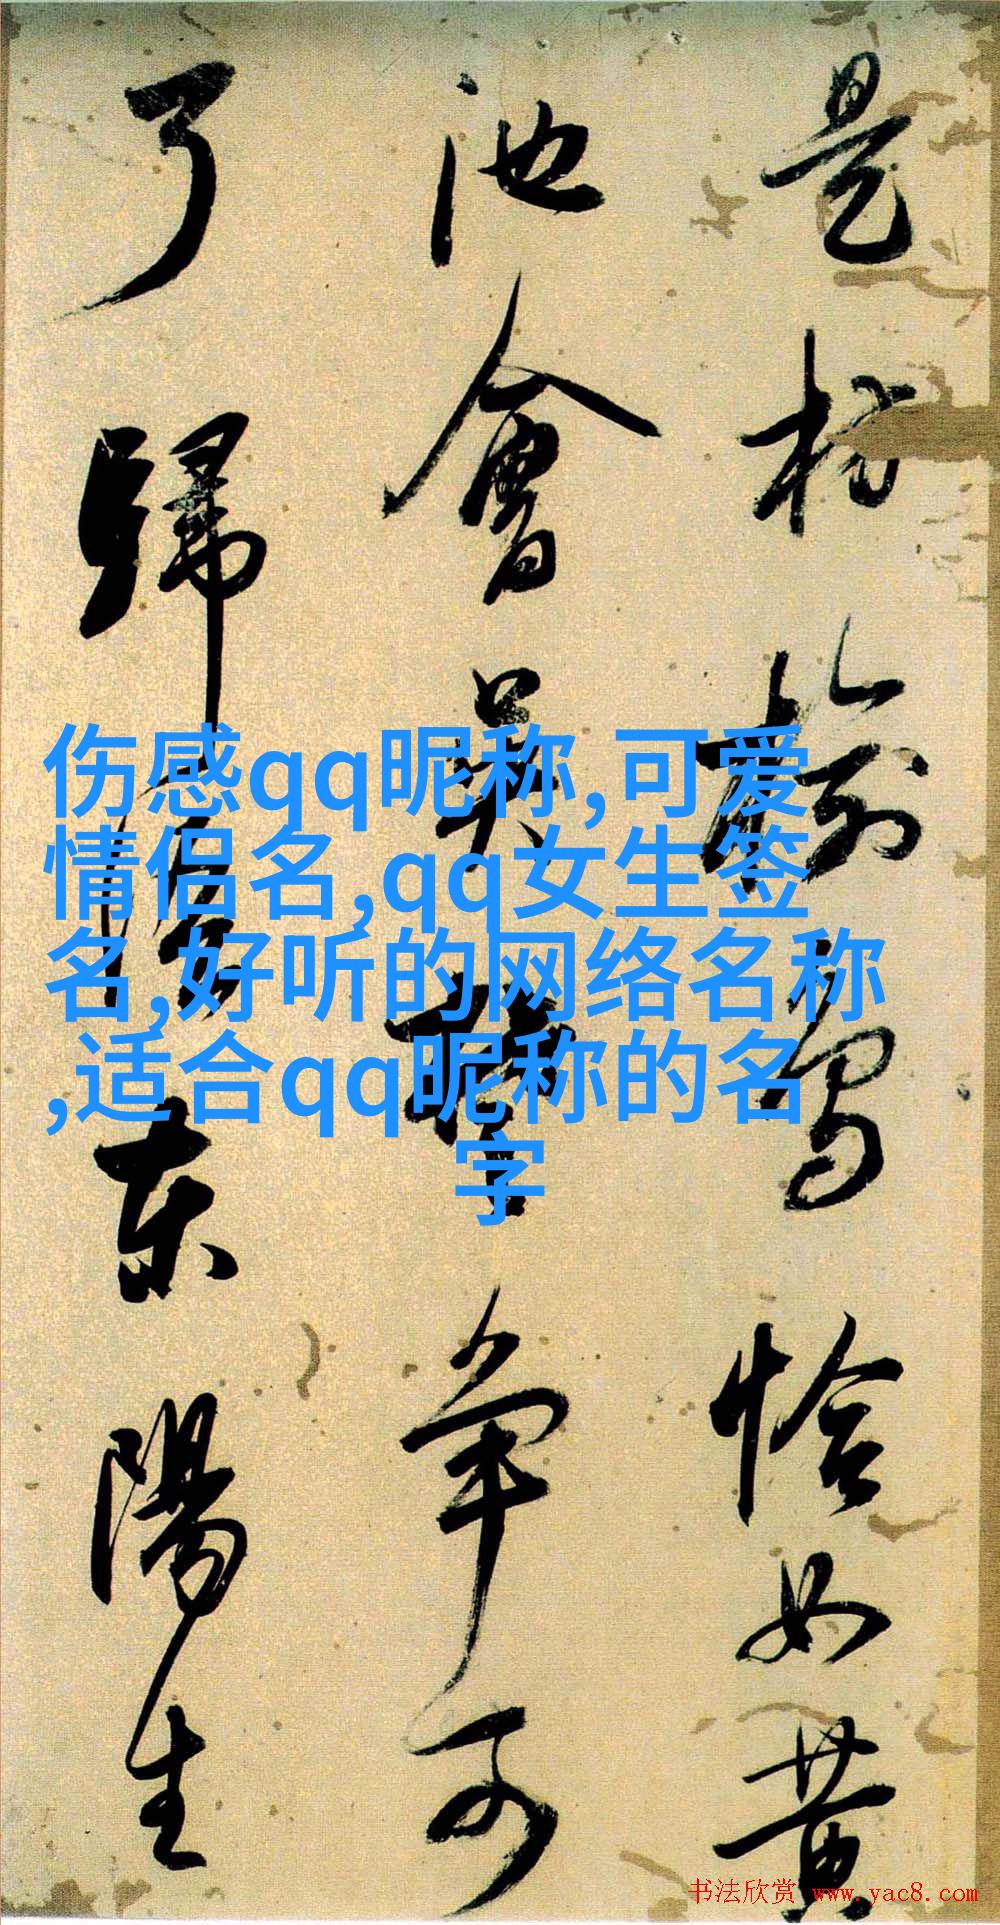 是枋榆恰如黄
池會争可
了歸東陽生
伤感qq昵称,可爱
情侣名,qq女生签
名,好听的网络名称
,适合qq昵称的名
字
书法欣赏 www.yac8.com